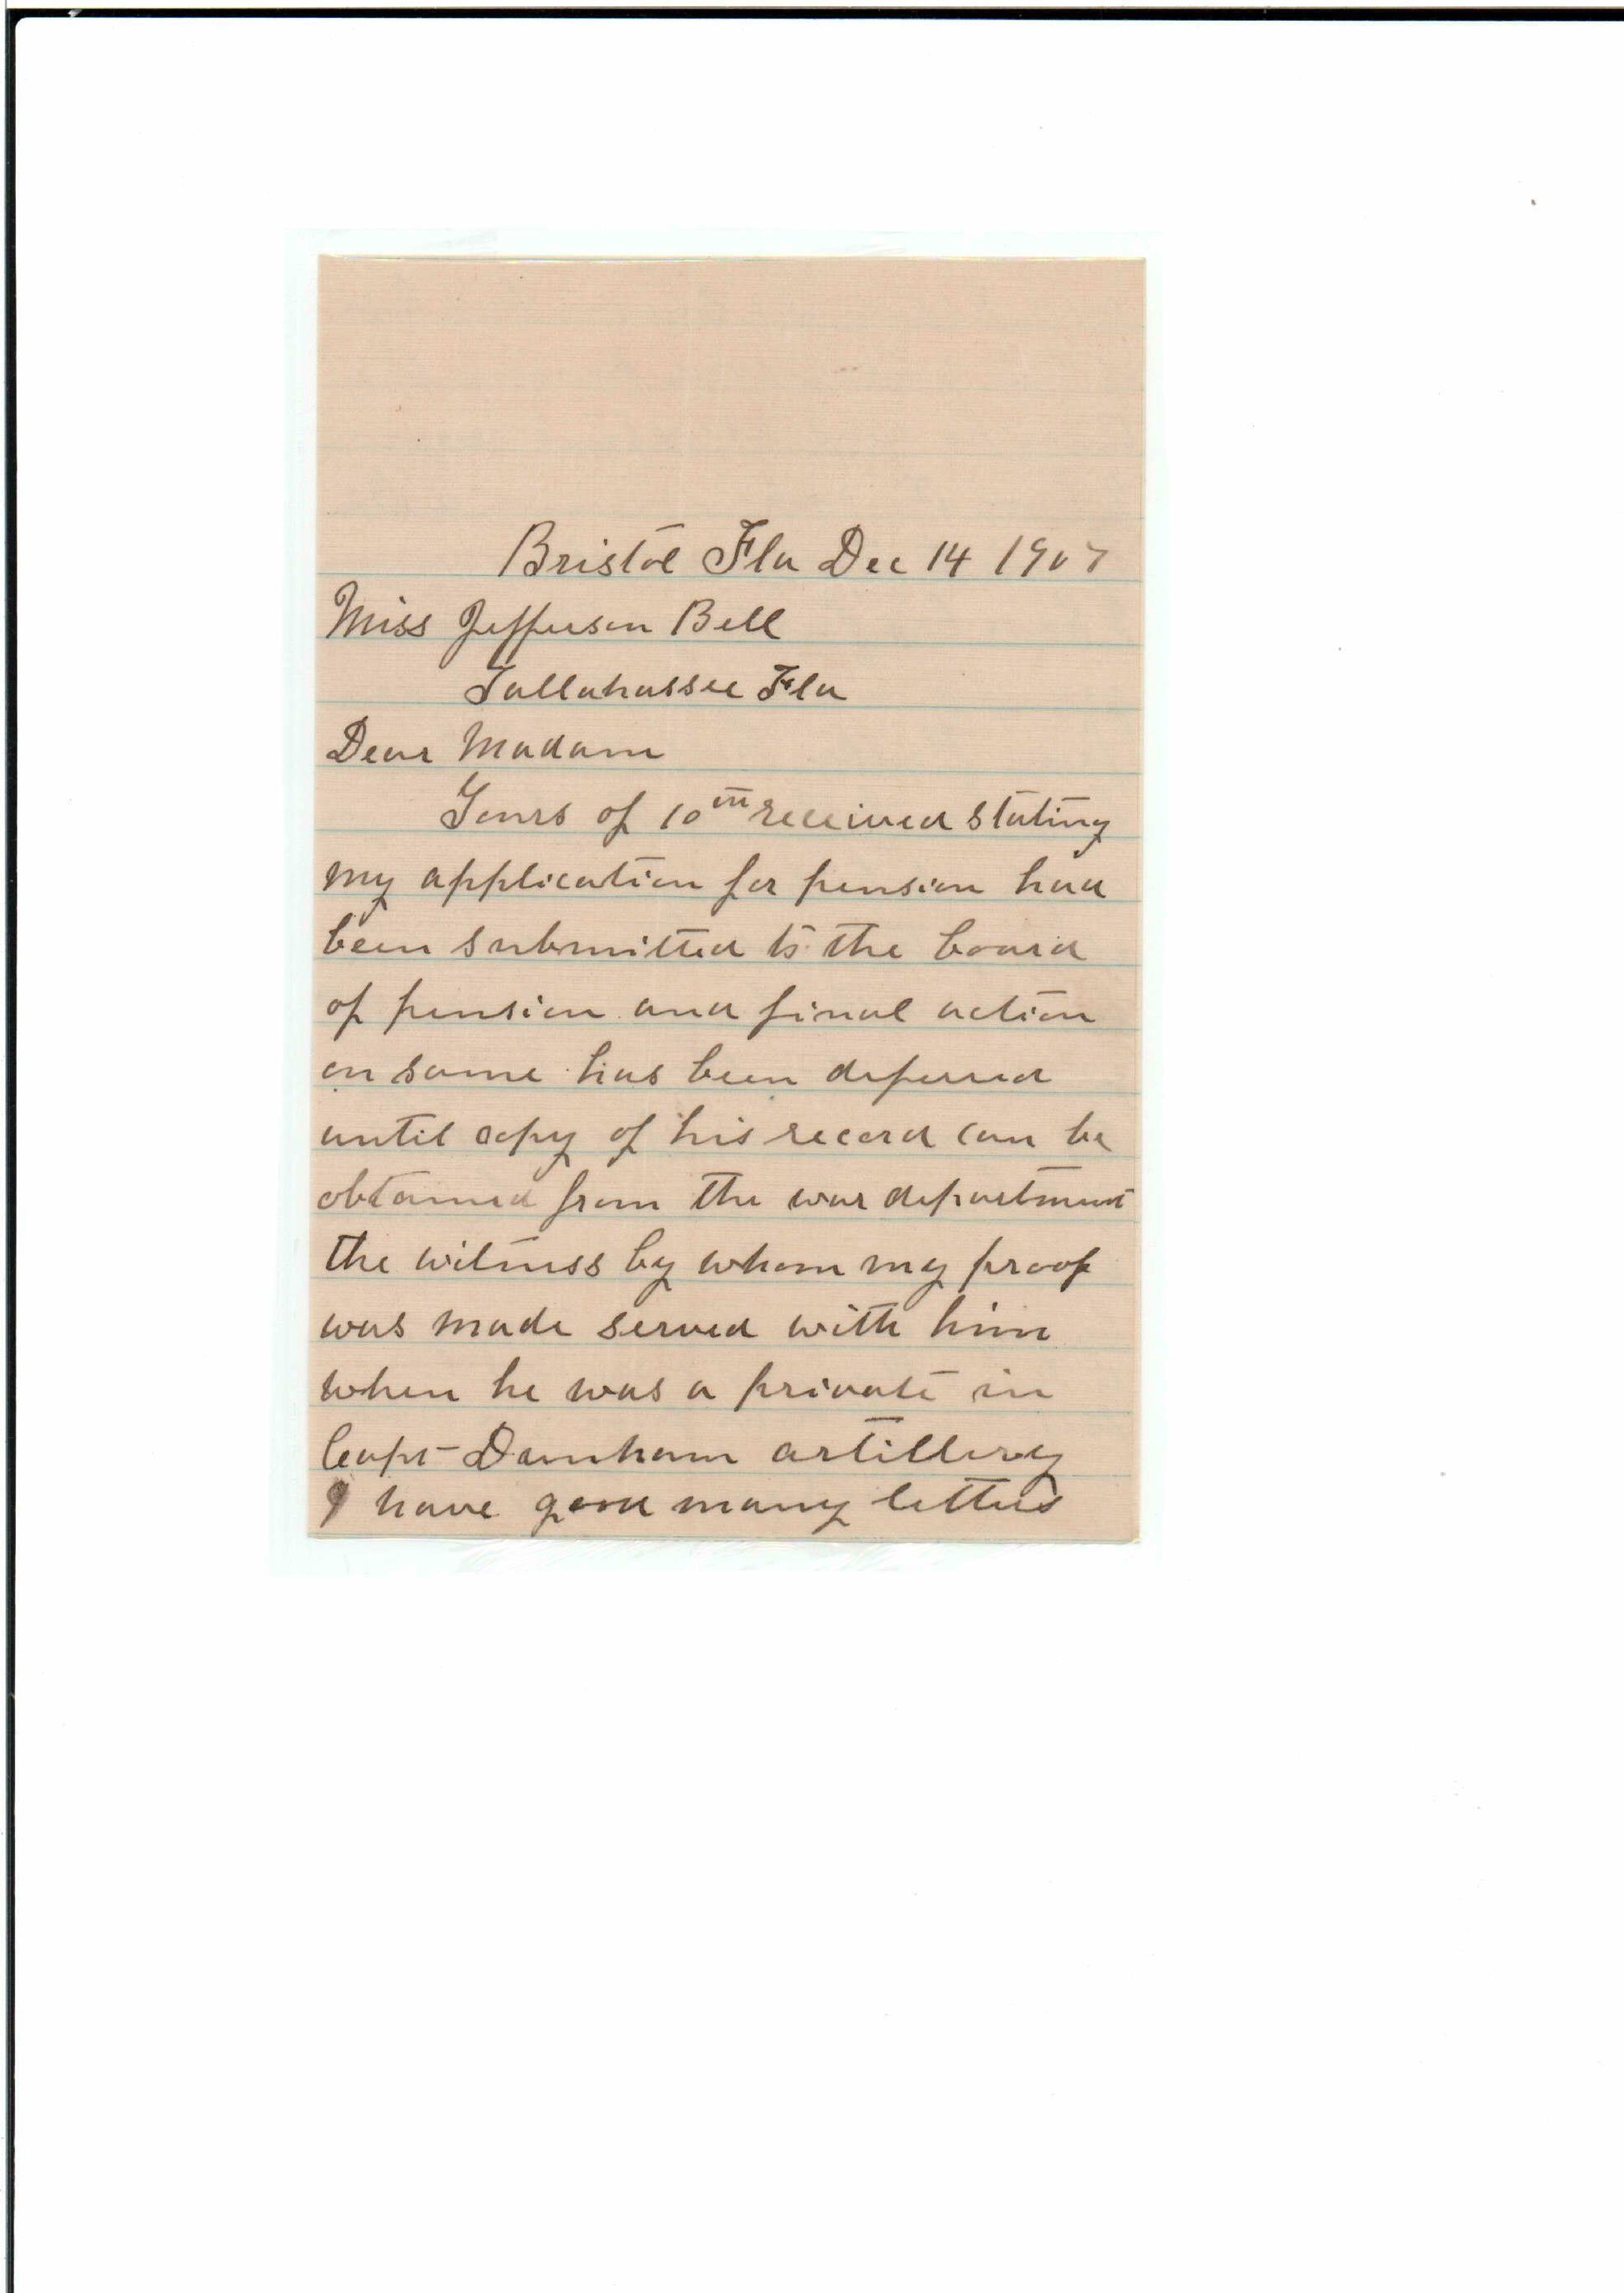 Bristol Fla Dec 14 1907
Miss Jefferson Bell
Tallahassee Fla
Dear Madam
Yours of 10th received stating
my application for pension had
been submitted to the board
of pension and final action
on same has been deferred
until copy of his record can be
obtained from the war department
the witness by whom my proof
was made served with him
when he was a private in
Capt Dunham artillery
I have good many letters